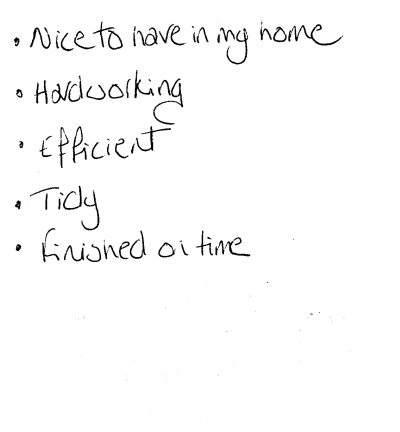 • Nice to have in my home
• Hardworking
• Efficient
• Tidy
• Finished on time